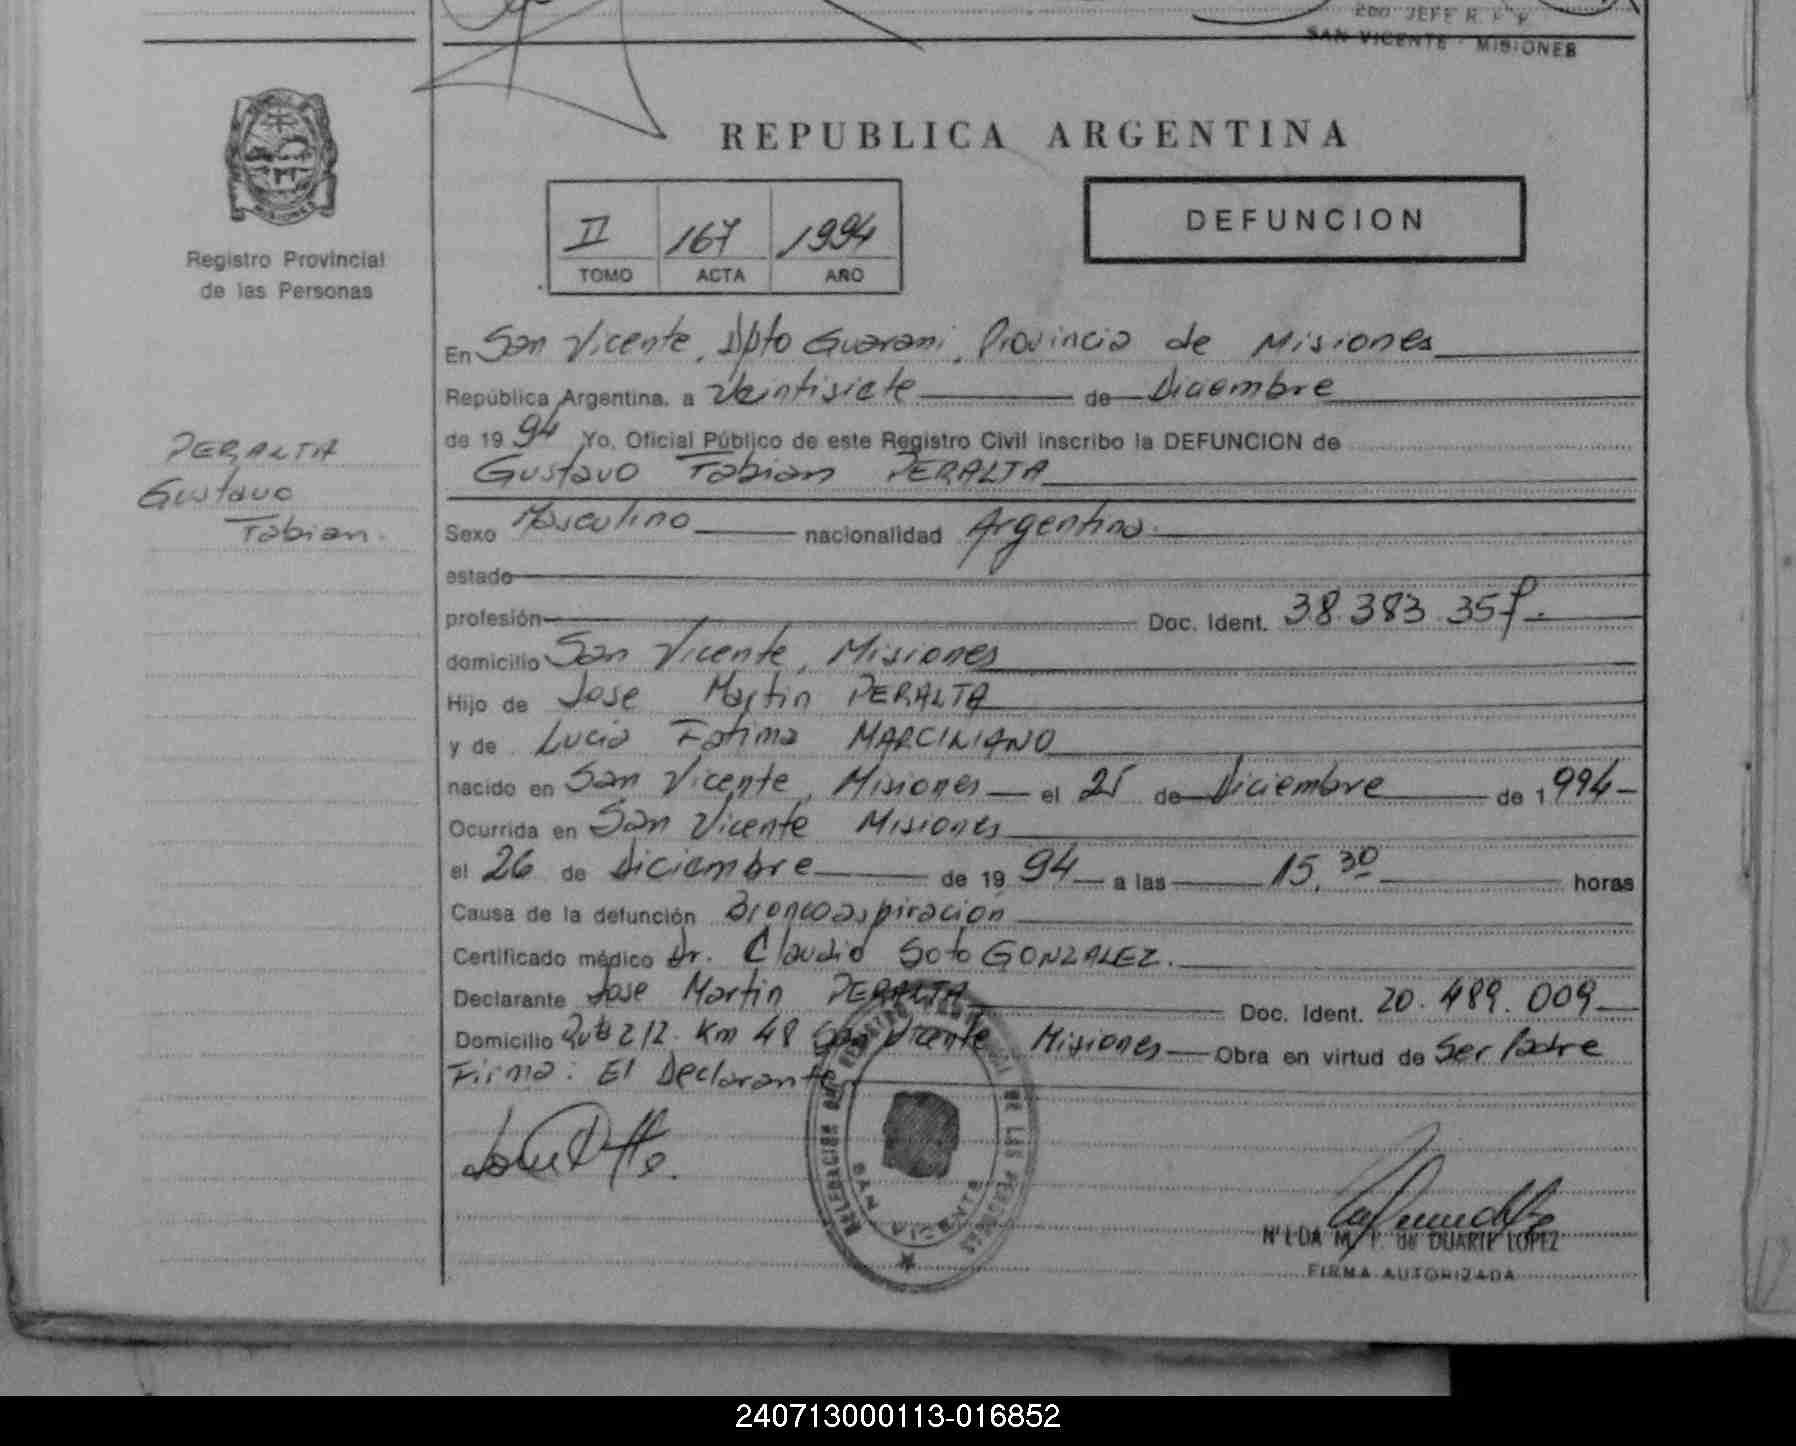 200 JEFE R. P. P.
SAN VICENTE - MISIONES
REPUBLICA ARGENTINA
MISIONES
Registro Provincial
de las Personas
II 167 1994
TOMO ACTA AÑO
DEFUNCION
PERALTA
Gustavo
Fabian.
En San Vicente, Dpto Guarani, Provincia de Misiones
República Argentina, a Veintisiete de Diciembre
de 1994 Yo, Oficial Público de este Registro Civil inscribo la DEFUNCION de
Gustavo Fabian PERALTA
Sexo Masculino nacionalidad Argentina.
estado
profesión Doc. Ident. 38.383.357.
domicilio San Vicente, Misiones
Hijo de Jose Martin PERALTA
y de Lucia Fatima MARCINIANO
nacido en San Vicente, Misiones el 25 de Diciembre de 1994
Ocurrida en San Vicente Misiones
el 26 de Diciembre de 1994 a las 15,30 horas
Causa de la defunción Broncoaspiracion
Certificado médico Dr. Claudio Soto GONZALEZ.
Declarante Jose Martin PERALTA Doc. Ident. 20.489.009
Domicilio Ruta 212. Km 48 San Vicente Misiones Obra en virtud de Ser Padre
Firma: El Declarante
DE LAS PERSONAS
SAN VICENTE
de DUARTE LOPEZ
FIRMA AUTORIZADA
240713000113-016852